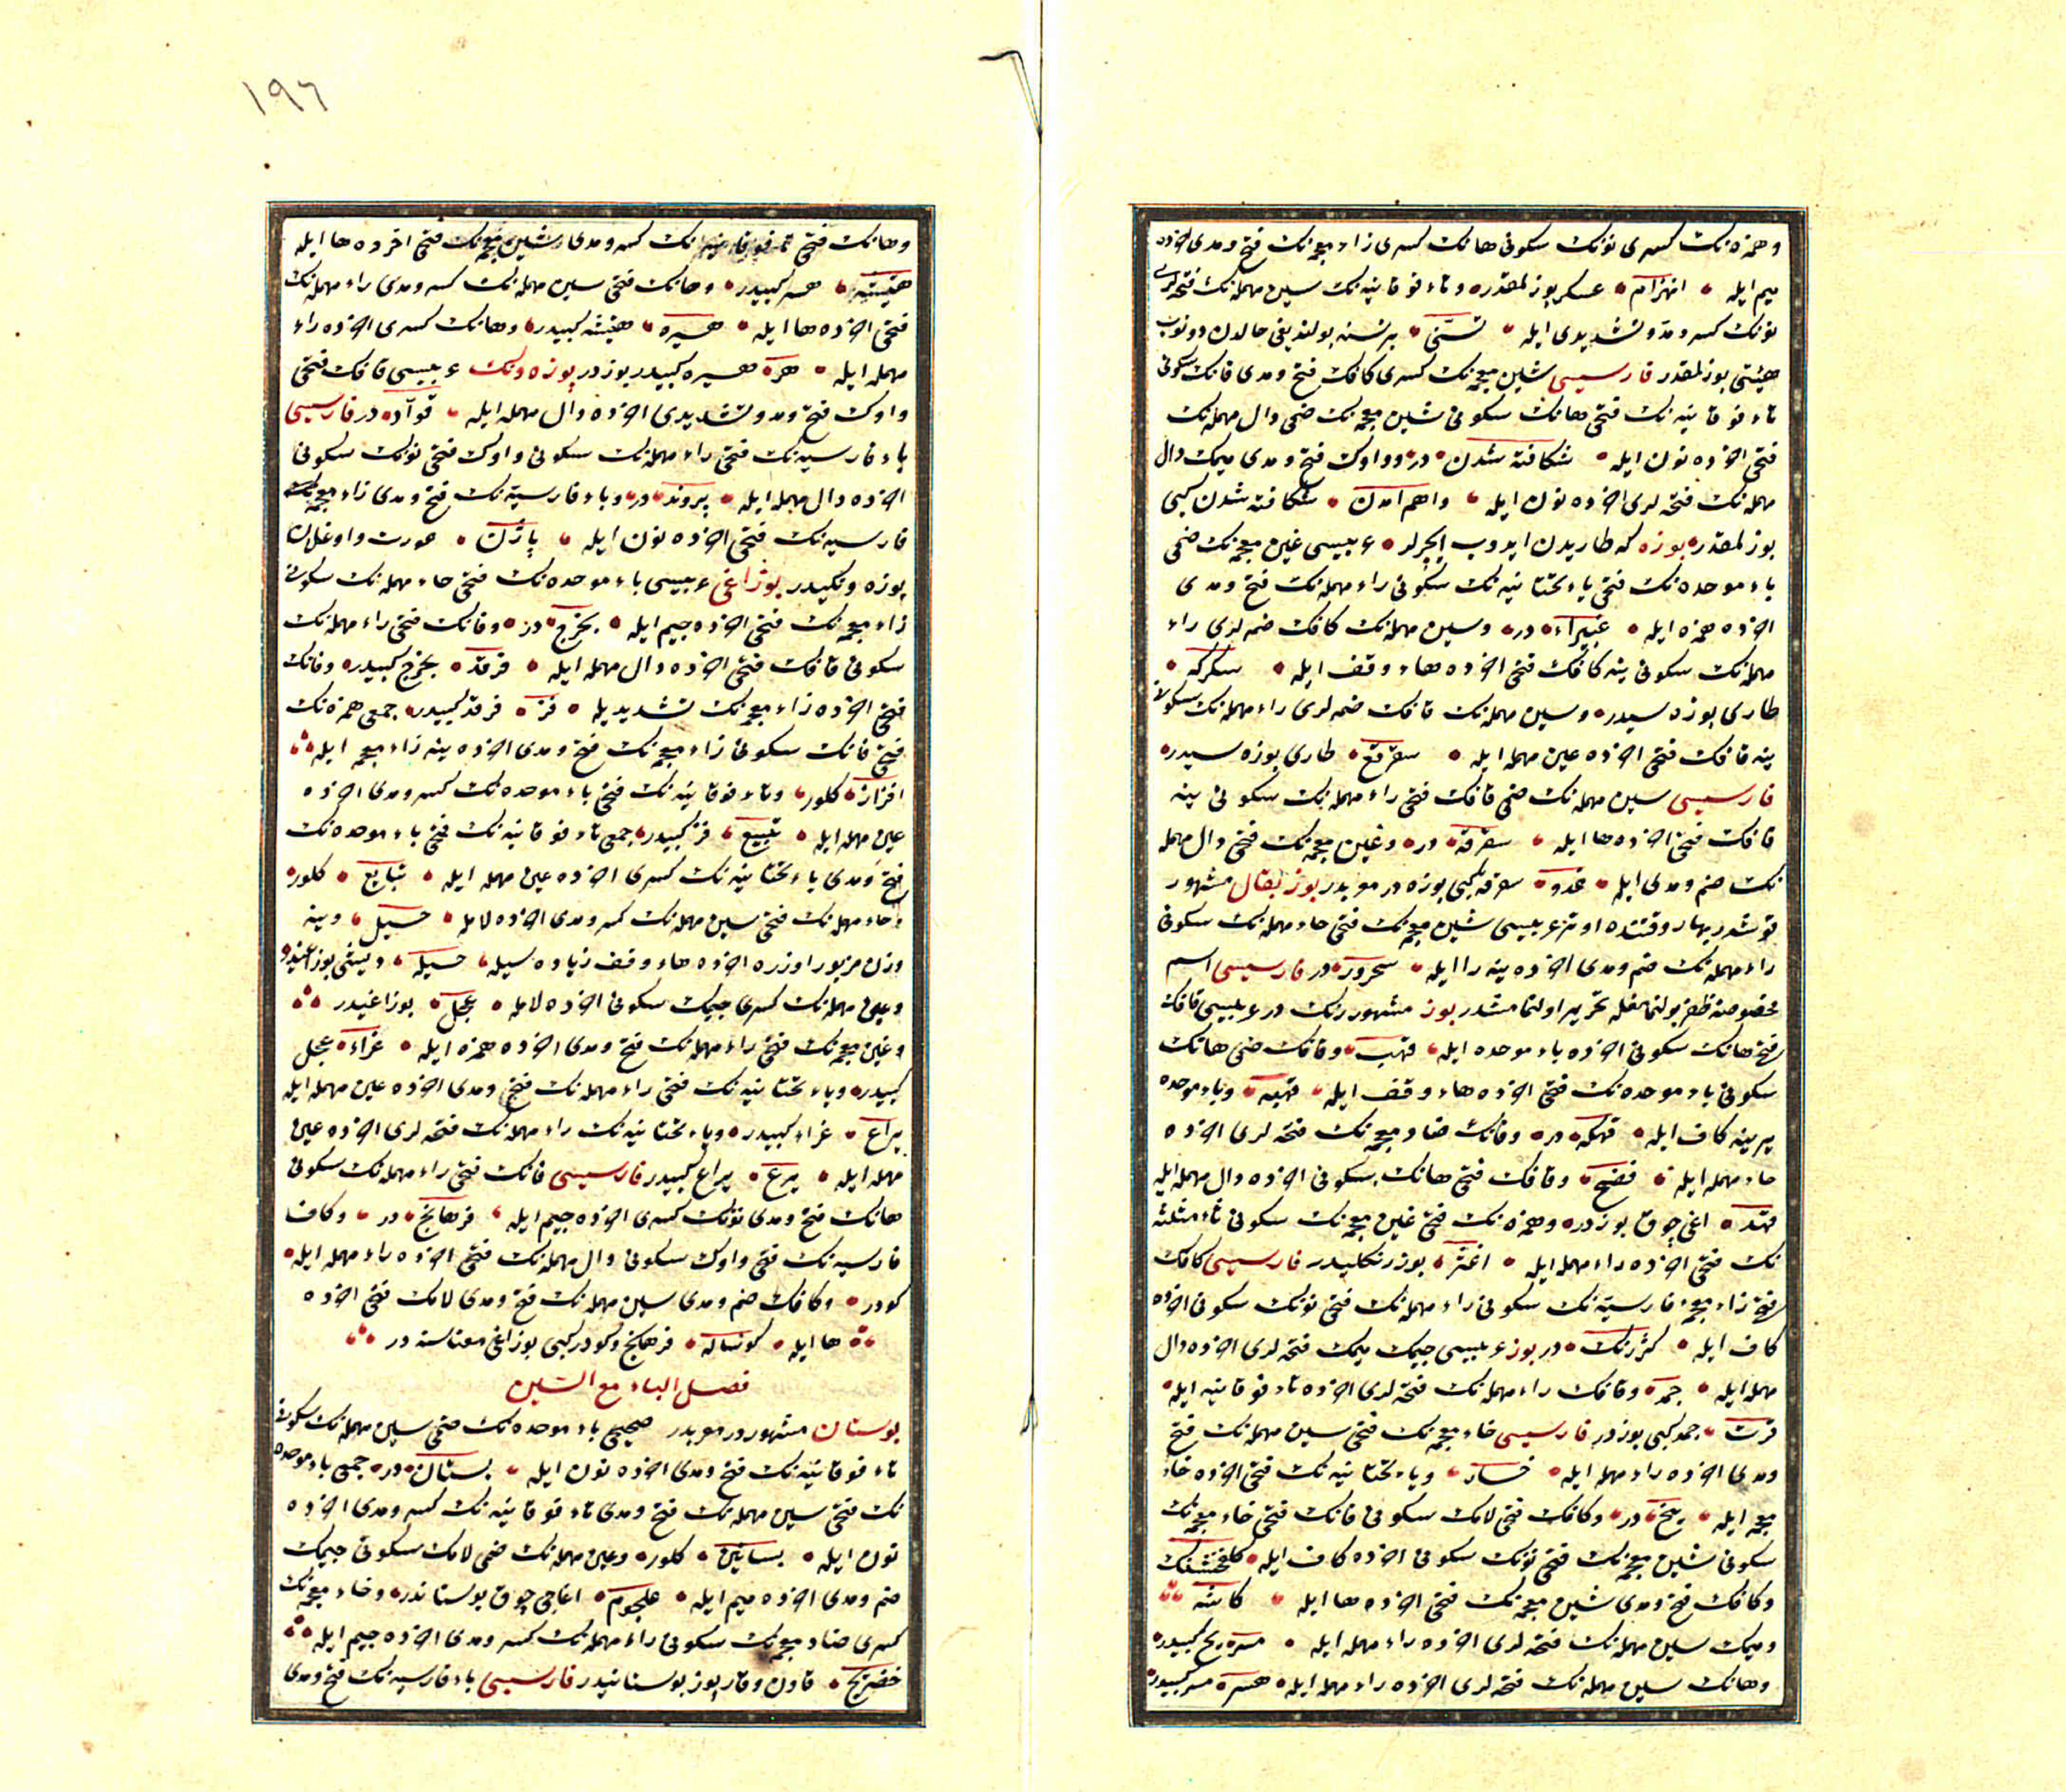 وهمزه نك كسری نونك سكونی هانك كسری زاء معجمه نك فتح ومدی اخرده
میم ایله • انهزام • عسكر بوزلمقدر • وتاء فوقانیه نك سین مهمله نك فتحه لری
نونك كسر ومد وتشدیدی ایله • تسنی • برنسنه بولندیغی حالدن دونوب
هیئتی بوزلمقدر فارسیسی شین معجمه نك كسری كافك فتح ومدی فانك سكونی
تاء فوقانیه نك فتحی هانك سكونی شین معجمه نك ضمی دال مهمله نك
فتحی اخرده نون ایله • شكافته شدن • در • وواوك فتح ومدی میمك دال
مهمله نك فتحه لری اخرده نون ایله • واهم امدن • شكافته شدن كبی
بوزلمقدر • بوزه كه طاریدن ایدوب ایچرلر • عربیسی غین معجمه نك ضمی
باء موحده نك فتحی یاء تحتانیه نك سكونی راء مهمله نك فتح ومدی
اخرده همزه ایله • غبیراء • در • وسین مهمله نك كافك ضمه لری راء
مهمله نك سكونی ینه كافك فتحی اخرده هاء وقف ایله • سكركه •
طاری بوزه سیدر • وسین مهمله نك قافك ضمه لری راء مهمله نك سكونی
ینه قافك فتحی اخرده عین مهمله ایله • سقرقع • طاری بوزه سیدر •
فارسیسی سین مهمله نك ضمی قافك فتحی راء مهمله نك سكونی ینه
قافك فتحی اخرده ها ایله • سقرقه • در • وغین معجمه نك فتحی دال مهمله
نك ضم ومدی ایله • غدو • سقرقه كبی بوزه در موبدر بوز بقال مشهور
قوشدر بهار وقتنده اوتر عربیسی شین معجمه نك فتحی حاء مهمله نك سكونی
راء مهمله نك ضم ومدی اخرده ینه را ایله • شحرور • در فارسیسی اسم
مخصوصنه ظفر بولنمامغله تحریر اولنمامشدر بوز مشهور رنك در عربیسی قافك
فتح هانك سكونی اخرده باء موحده ایله • قهب • وقافك ضمی هانك
سكونی باء موحده نك فتحی اخرده هاء وقف ایله • قهبه • وباء موحده
یرینه كاف ایله • قهكه • در • وفانك ضاد معجمه نك فتحه لری اخرده
حاء مهمله ایله • فضح • وقافك فتحی هانك سكونی اخرده دال مهمله ایله
قهد • اغی چوق بوزدر • وهمزه نك فتحی غین معجمه نك سكونی ثاء مثلثه
نك فتحی اخرده راء مهمله ایله • اغثر • بوز رنكلیدر فارسیسی كافك
فتح زاء معجمه فارسیه نك سكونی راء مهمله نك فتحی نونك سكونی اخرده
كاف ایله • كژرنك • در بوز عربیسی جیمك میمك فتحه لری اخرده دال
مهمله ایله • جمد • وقافك راء مهمله نك فتحه لری اخرده تاء فوقانیه ایله •
قرت • جمد كبی بوزدر فارسیسی خاء معجمه نك فتحی سین مهمله نك فتح
ومدی اخرده راء مهمله ایله • خسار • ویاء تحتانیه نك فتحی اخرده خاء
معجمه ایله • یخ • در • وكافك فتحی لامك سكونی فانك فتحی خاء معجمه نك
سكونی شین معجمه نك فتحی نونك سكونی اخرده كاف ایله • كلفخشنك
وكافك فتح ومدی شین معجمه نك فتحی اخرده ها ایله • كاشه •
ومیمك سین مهمله نك فتحه لری اخرده راء مهمله ایله • مسر • یخ كبیدر •
وهانك سین مهمله نك فتحه لری اخرده راء مهمله ایله • هسر • مسر كبیدر •
١٩٦
وهانك فتحی كسر ومدی شین معجمه نك فتحی اخرده ها ایله
هیشه • هسر كبیدر • وهانك فتحی سین مهمله نك كسر ومدی راء مهمله نك
فتحی اخرده ها ایله • هسیره • هیشه كبیدر • وهانك كسری اخرده راء
مهمله ایله • هر • هسیره كبیدر بوزدر بوزه ونك عربیسی قافك فتحی
واوك فتح ومد وتشدیدی اخرده دال مهمله ایله • قواد • در فارسیسی
باء فارسیه نك فتحی راء مهمله نك سكونی واوك فتحی نونك سكونی
اخرده دال مهمله ایله • پروند • در • وباء فارسیه نك فتح ومدی زاء معجمه
فارسیه نك فتحی اخرده نون ایله • پاژن • عورت واوغلان
بوزه ونكیدر بوزاغی عربیسی باء موحده نك فتحی حاء مهمله نك سكونی
زاء معجمه نك فتحی اخرده جیم ایله • بحزج • در • وفانك فتحی راء مهمله نك
سكونی قافك فتحی اخرده دال مهمله ایله • فرقد • بحزج كبیدر • وفانك
فتحی اخرده زاء معجمه نك تشدیدیله • فز • فرقد كبیدر • جمعی همزه نك
فتحی فانك سكونی زاء معجمه نك فتح ومدی اخرده ینه زاء معجمه ایله
افزاز • كلور • وتاء فوقانیه نك فتحی باء موحده نك كسر ومدی اخرده
عین مهمله ایله • تبیع • فز كبیدر • جمعی تاء فوقانیه نك فتحی باء موحده نك
فتح ومدی یاء تحتانیه نك كسری اخرده عین مهمله ایله • تبایع • كلور •
وحاء مهمله نك فتحی سین مهمله نك كسر ومدی اخرده لامله • حسیل • وینه
وزن مزبور اوزره اخرده هاء وقف زیاده سیله • حسیله •
وعین مهمله نك كسری جیمك سكونی اخرده لامله • عجل • بوزاغیدر
وغین معجمه نك فتحی راء مهمله نك فتح ومدی اخرده همزه ایله • غراء • عجل
كبیدر • ویاء تحتانیه نك فتحی راء مهمله نك فتح ومدی اخرده عین مهمله ایله
یراع • غراء كبیدر • ویاء تحتانیه نك راء مهمله نك فتحه لری اخرده عین
مهمله ایله • یرع • یراع كبیدر فارسیسی فانك فتحی راء مهمله نك سكونی
هانك فتح ومدی نونك كسری اخرده جیم ایله • فرهانج • در • وكاف
فارسیه نك فتحی واوك سكونی دال مهمله نك فتحی اخرده راء مهمله ایله •
كودر • وكافك ضم ومدی سین مهمله نك فتح ومدی لامك فتحی اخرده
ها ایله • كوساله • فرهانج وكودر كبی بوزاغی معناسنه در
فصل الباء مع السین
بوستان مشهوردر موبدر صحیحی باء موحده نك ضمی سین مهمله نك سكونی
تاء فوقانیه نك فتح ومدی اخرده نون ایله • بستان • در • جمعی باء موحده
نك فتحی سین مهمله نك فتح ومدی تاء فوقانیه نك كسر ومدی اخرده
نون ایله • بساتین • كلور • وعین مهمله نك ضمی لامك سكونی جیمك
ضم ومدی اخرده میم ایله • علجوم • اغاجی چوق بوستاندر • وخاء معجمه نك
كسری ضاد معجمه نك سكونی راء مهمله نك كسر ومدی اخرده جیم ایله
خضریج • قاون وقارپوز بوستانیدر فارسیسی باء فارسیه نك فتح ومدی